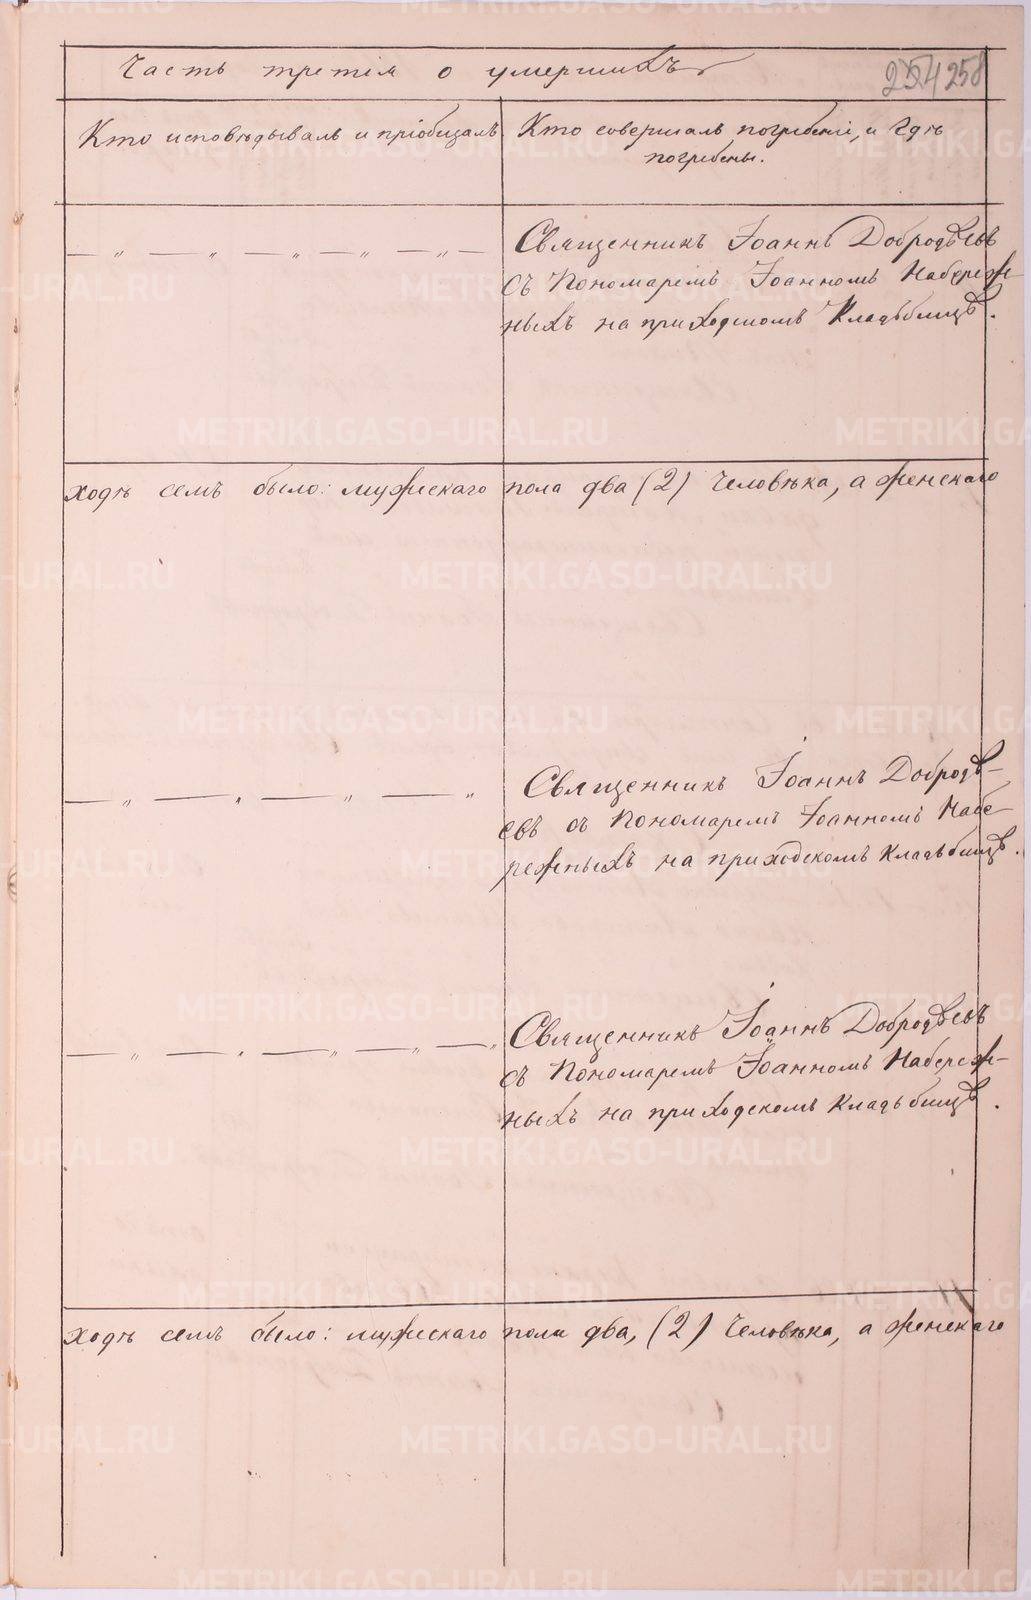 Часть третія о умершихъ
254 258
Кто исповѣдывалъ и пріобщалъ.
Кто совершалъ погребеніе, и гдѣ
погребены.
— „ — „ — „ — „ — „ —
Священникъ Іоаннъ Добродѣевъ
съ Пономаремъ Іоанномъ Набереж-
ныхъ на приходскомъ кладьбищѣ.
ходѣ семъ было: мужескаго пола два (2) человѣка, а женскаго
— „ — „ — „ — „
Священникъ Іоаннъ Добродѣ-
евъ съ Пономаремъ Іоанномъ Набе-
режныхъ на приходскомъ кладьбищѣ.
— „ — „ — „ — „ — „
Священникъ Іоаннъ Добродѣевъ
съ Пономаремъ Іоанномъ Набереж-
ныхъ на приходскомъ кладьбищѣ.
ходѣ семъ было: мужескаго пола два, (2) человѣка, а женскаго
METRIKI.GASO-URAL.RU